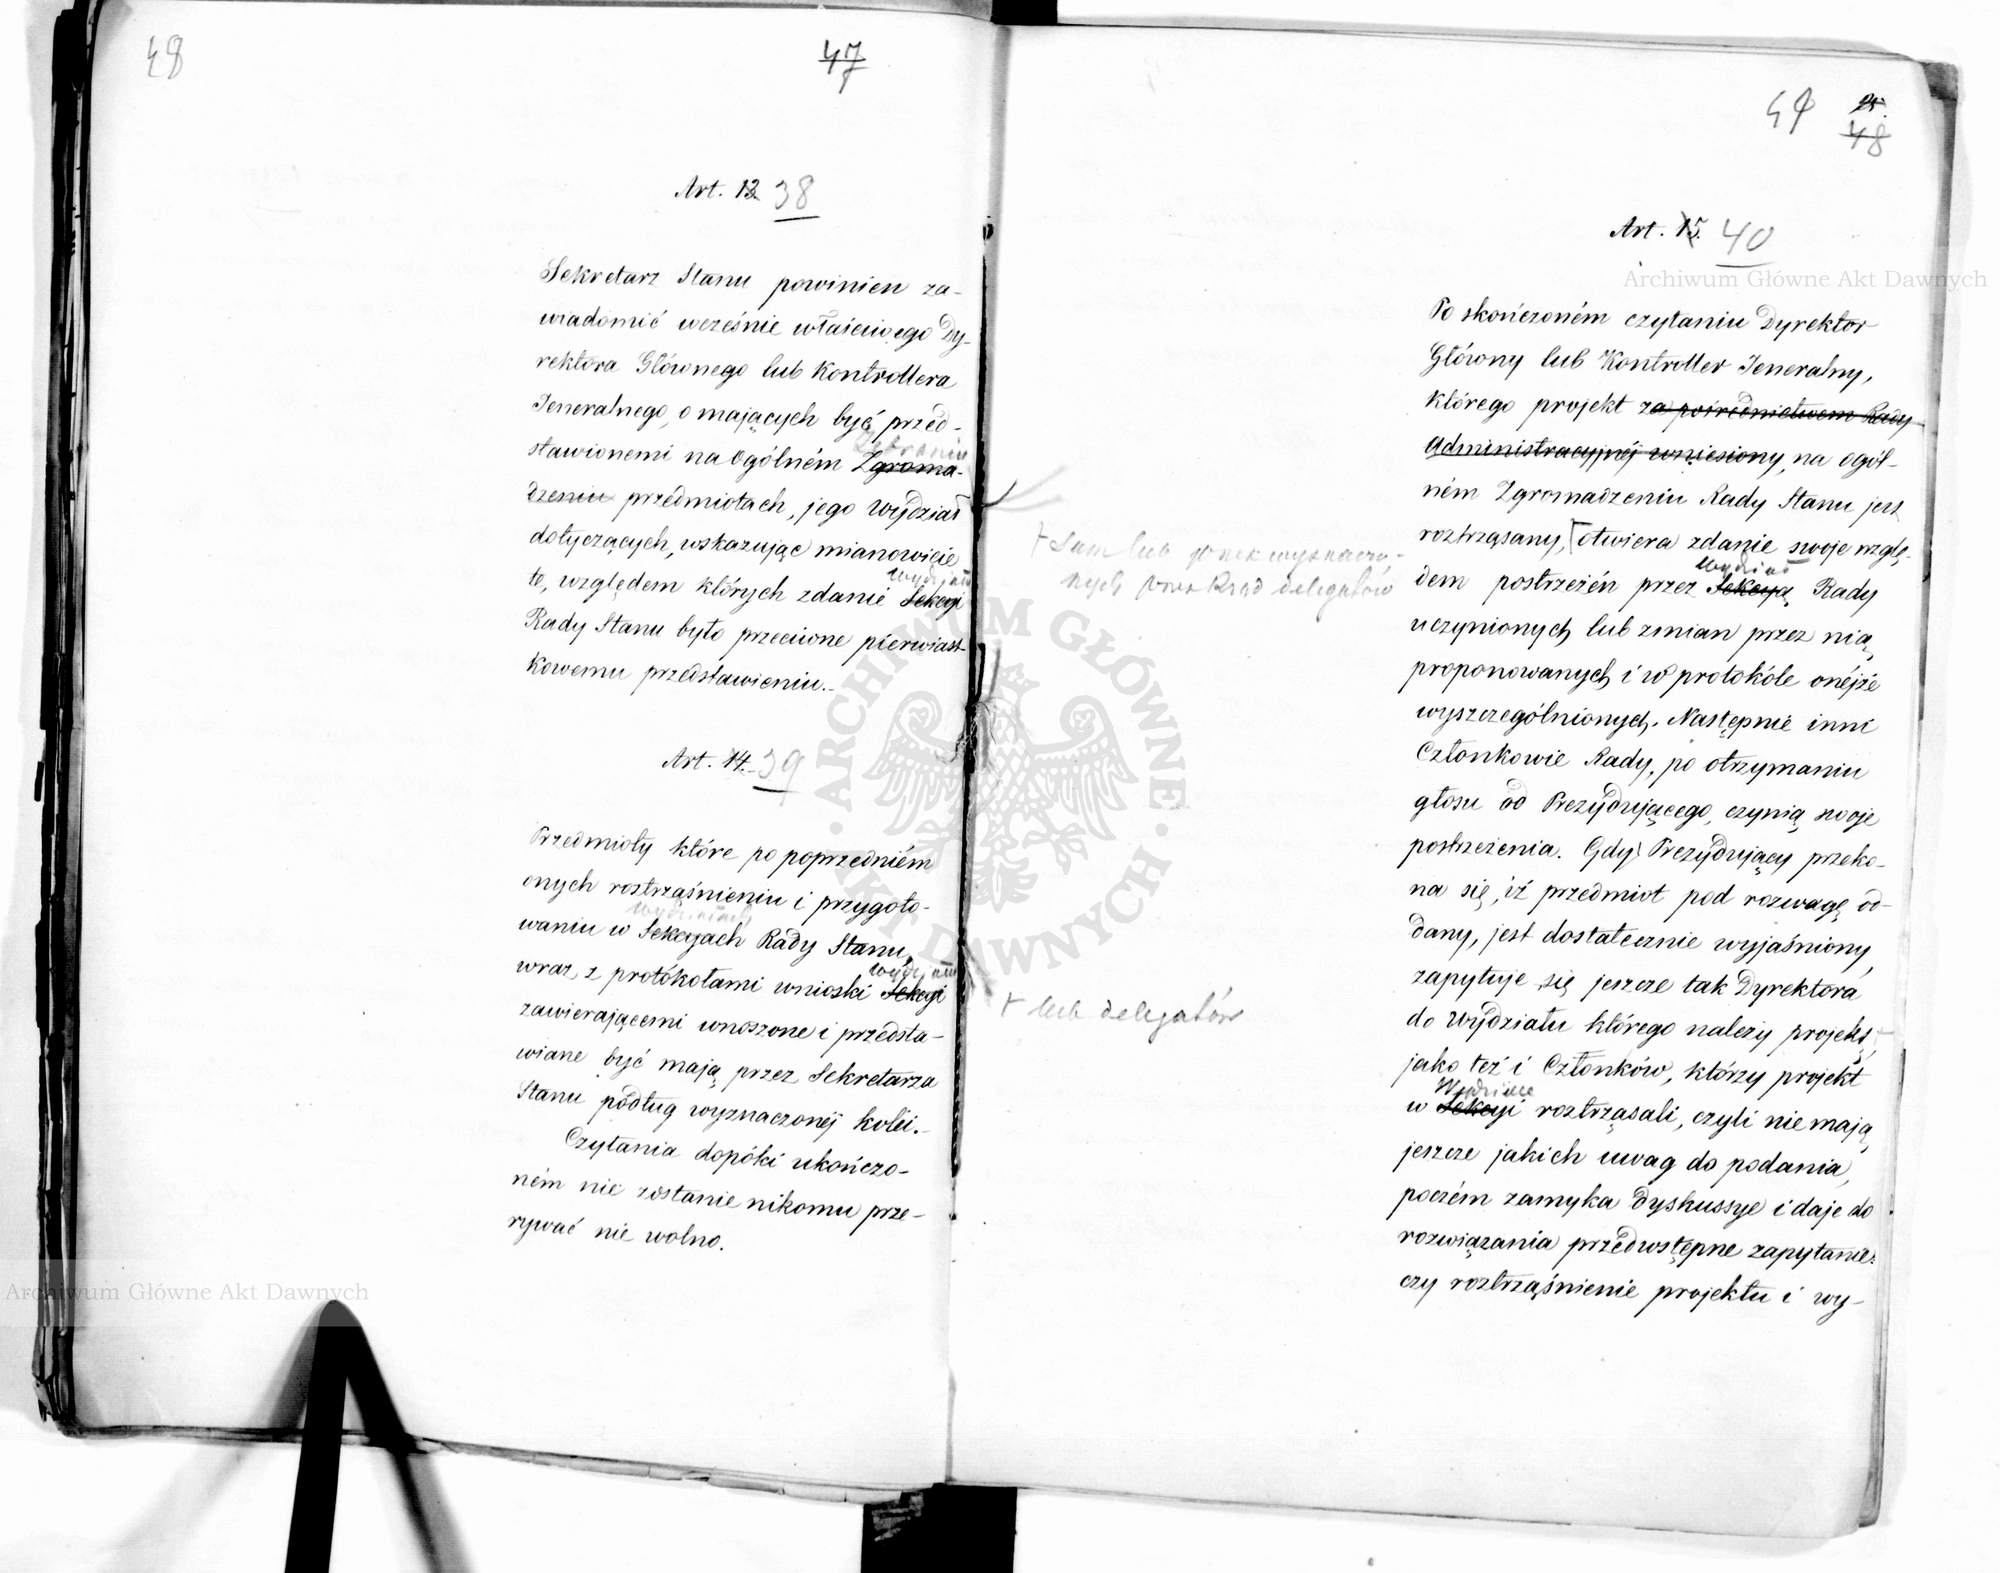 48
47
Art. 13. 38
Sekretarz Stanu powinien za-
wiadomić wcześnie właściwego Dy-
rektora Głównego lub Kontrollera
Jeneralnego, o mających być przed-
Zebraniu
stawionemi na Ogólném Zgroma-
dzeniu przedmiotach, jego Wydział
dotyczących, wskazując mianowicie
Wydziału
te, względem których zdanie Sekcyi
Rady Stanu było przeciwne pierwiast-
kowemu przedstawieniu.
Art. 14. 39
Przedmioty które po poprzedniém
onych roztrząśnieniu i przygoto-
Wydziałach
waniu w Sekcyach Rady Stanu,
Wydziału
wraz z protókołami wnioski Sekcyi
zawierającemi wnoszone i przedsta-
wiane być mają przez Sekretarza
Stanu podług wyznaczonéj kolei.
Czytania dopóki ukończo-
ném nie zostanie nikomu prze-
rywać nie wolno.
49
25.
48
Art. 15. 40
Po skończoném czytaniu Dyrektor
Główny lub Kontroller Jeneralny,
którego projekt za pośrednictwem Rady
Administracyjnéj wniesiony, na ogól-
ném Zgromadzeniu Rady Stanu jest
roztrząsany, otwiera zdanie swoje wzglę-
Wydział
dem postrzeżeń przez Sekcyą Rady
uczynionych lub zmian przez nią
proponowanych i w protokóle onéjże
wyszczególnionych. Następnie inni
Członkowie Rady, po otrzymaniu
głosu od Prezydującego, czynią swoje
postrzeżenia. Gdy Prezydujący przeko-
na się, iż przedmiot pod rozwagę od-
dany, jest dostatecznie wyjaśniony,
zapytuje się jeszcze tak Dyrektora
do Wydziału którego należy projekt,
jako też i Członków, którzy projekt
Wydziale
w Sekcyi roztrząsali, czyli nie mają
jeszcze jakich uwag do podania,
poczém zamyka Dyskussye i daje do
rozwiązania przedwstępne zapytanie:
czy roztrząśnienie projektu i wy-
+ Sam lub przez wyznaczo-
nych przez Rząd delegatów
+ lub delegatów
Archiwum Główne Akt Dawnych
Archiwum Główne Akt Dawnych
ARCHIWUM GŁÓWNE · AKT DAWNYCH ·